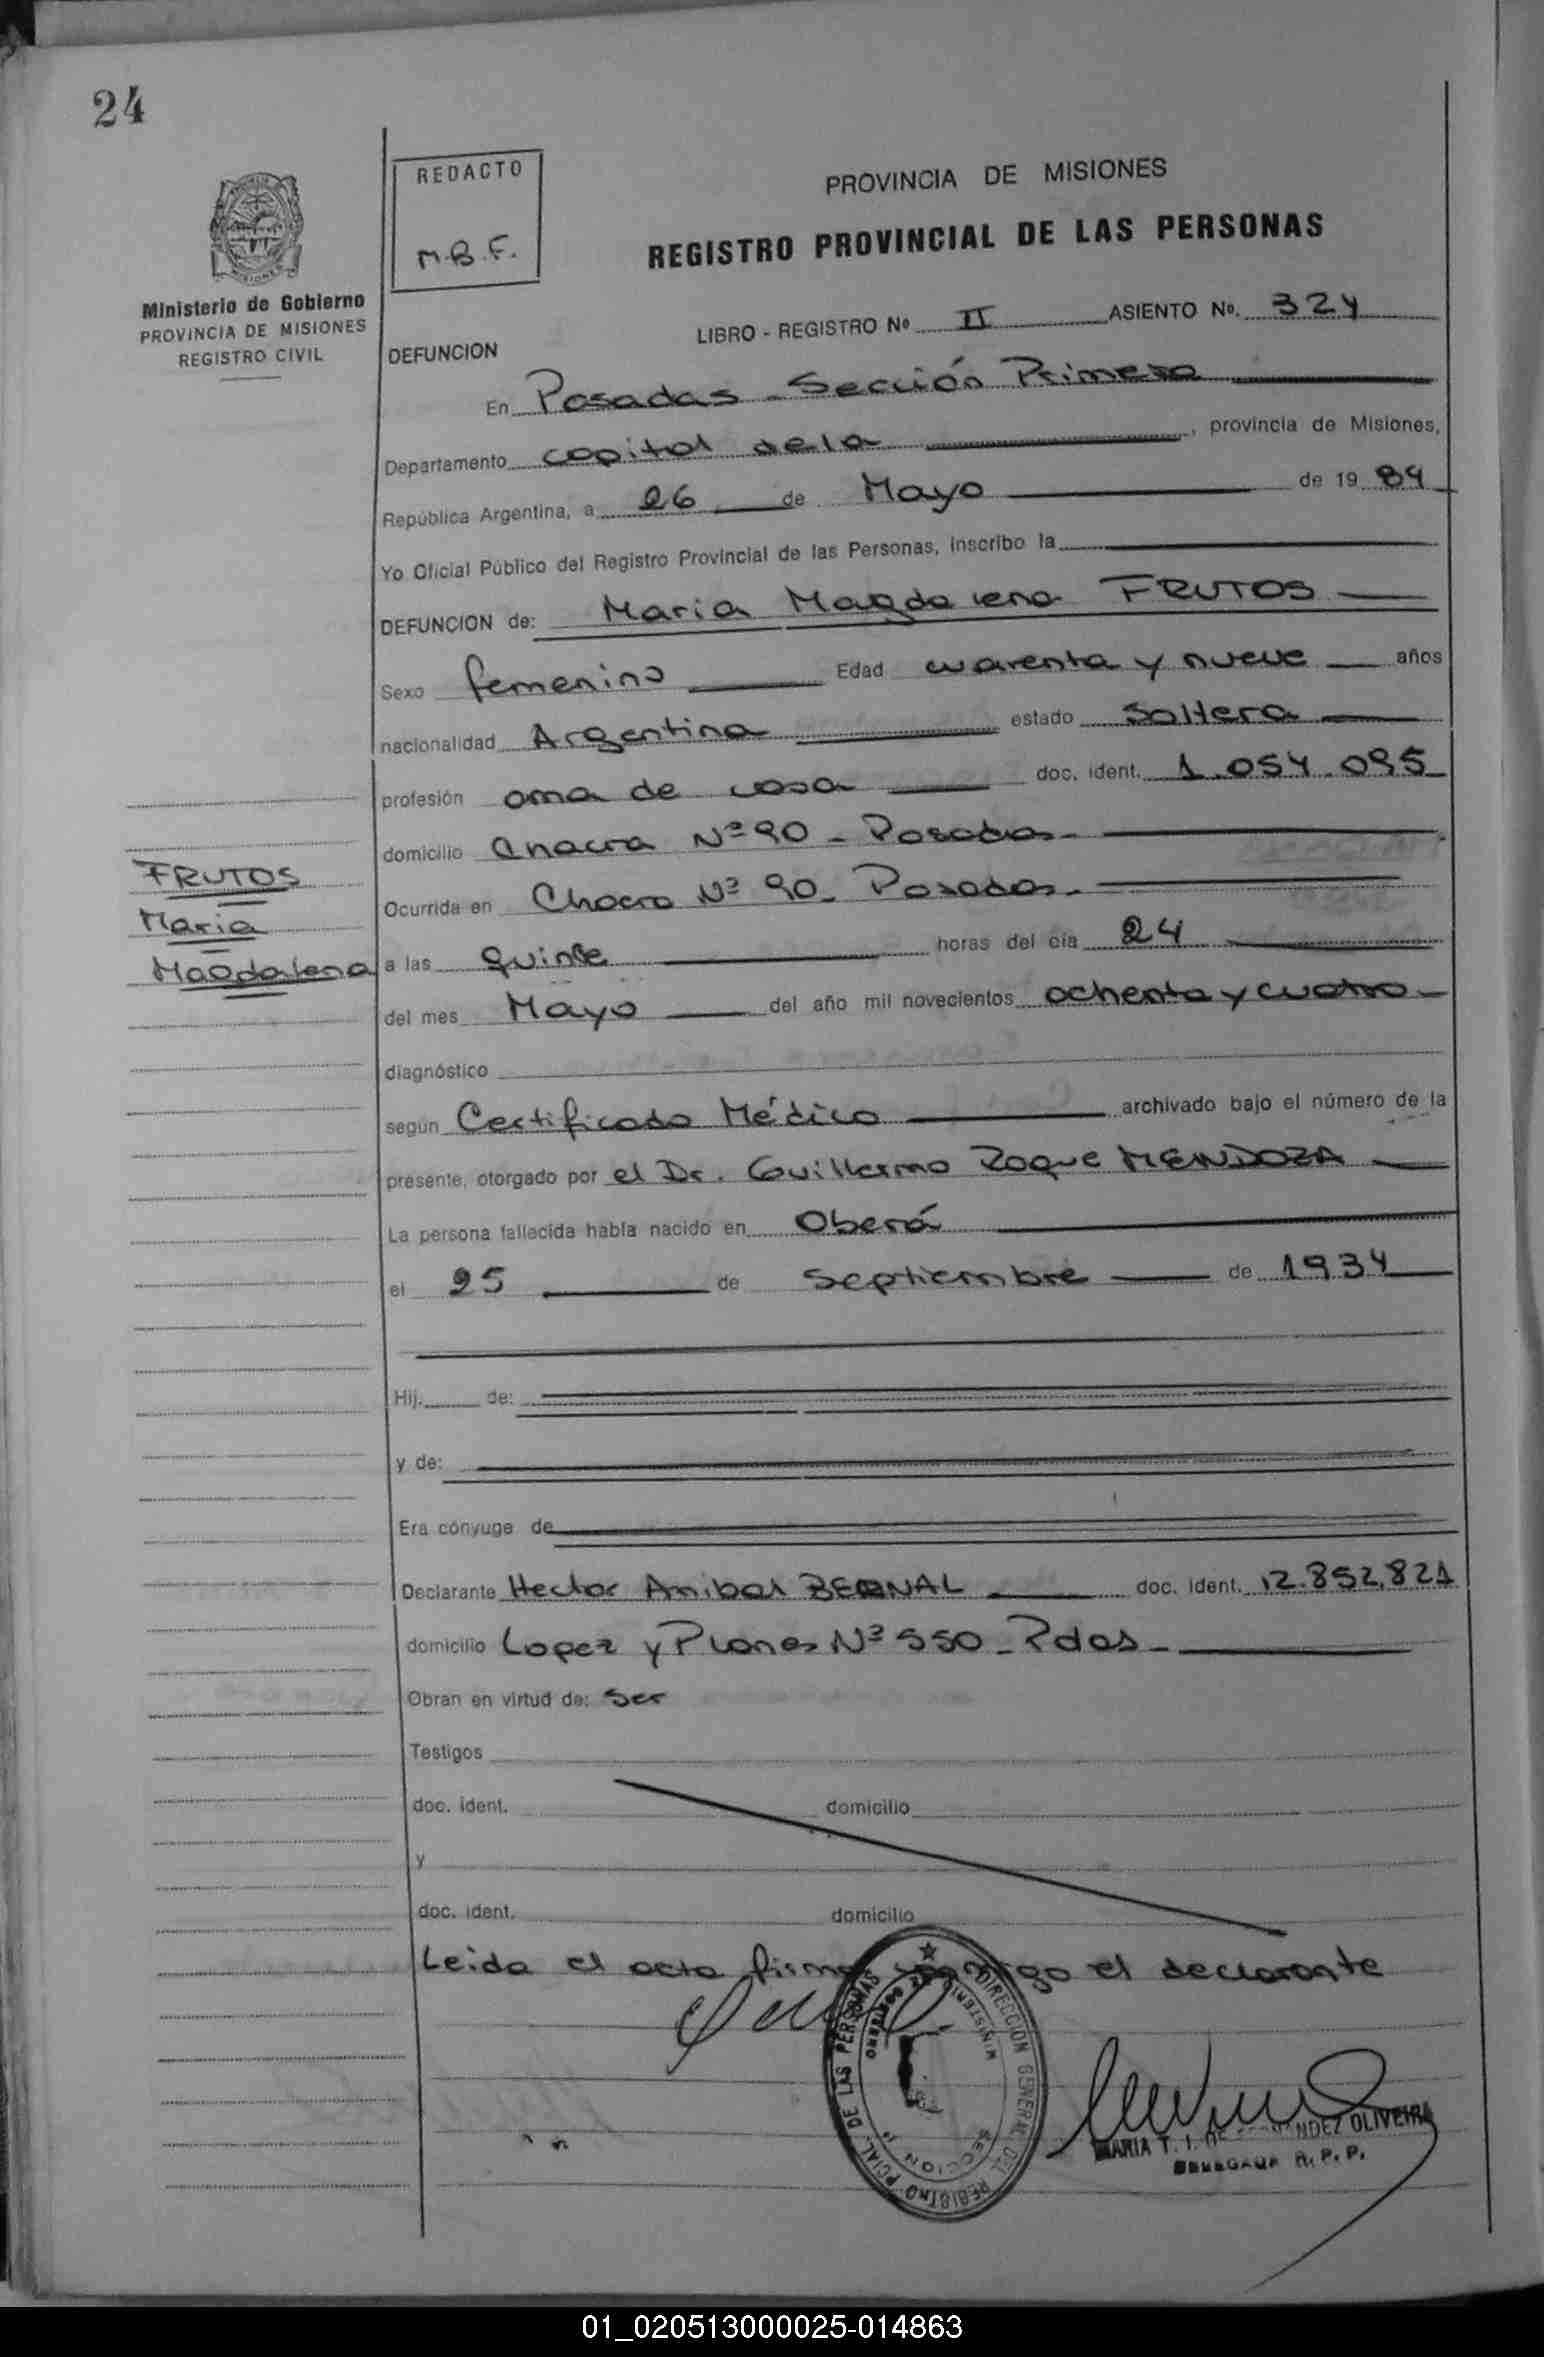 24
REDACTO
M.B.F.
PROVINCIA DE MISIONES
REGISTRO PROVINCIAL DE LAS PERSONAS
Ministerio de Gobierno
PROVINCIA DE MISIONES
REGISTRO CIVIL
LIBRO - REGISTRO Nº II ASIENTO Nº. 324
DEFUNCION
En Posadas - Sección Primera
Departamento capital de la , provincia de Misiones,
República Argentina, a 26 de Mayo de 19 84
Yo Oficial Público del Registro Provincial de las Personas, inscribo la
DEFUNCION de: Maria Magdalena FRUTOS
Sexo femenino Edad cuarenta y nueve años
nacionalidad Argentina estado Soltera
profesión ama de casa doc. ident. 1.054.095
domicilio Chacra Nº 90 - Posadas -
FRUTOS
Maria
Magdalena
Ocurrida en Chacra Nº 90 - Posadas -
a las quince horas del día 24
del mes Mayo del año mil novecientos ochenta y cuatro -
diagnóstico
según Certificado Médico archivado bajo el número de la
presente, otorgado por el Dr. Guillermo Roque MENDOZA
La persona fallecida había nacido en Oberá
el 25 de Septiembre de 1934
Hij. de:
y de:
Era cónyuge de
Declarante Hector Anibal BERNAL doc. ident. 12.852.821
domicilio Lopez y Planes Nº 550 - Pdas -
Obran en virtud de: Ser
Testigos
doc. ident. domicilio
y
doc. ident. domicilio
Leida el acta firma conmigo el declarante
DIRECCION GENERAL DEL REGISTRO PCIAL. DE LAS PERSONAS
MINISTERIO DE GOBIERNO
SECCION
MARIA T. I. DE OLIVEIRA
DELEGADA R.P.P.
01_020513000025-014863